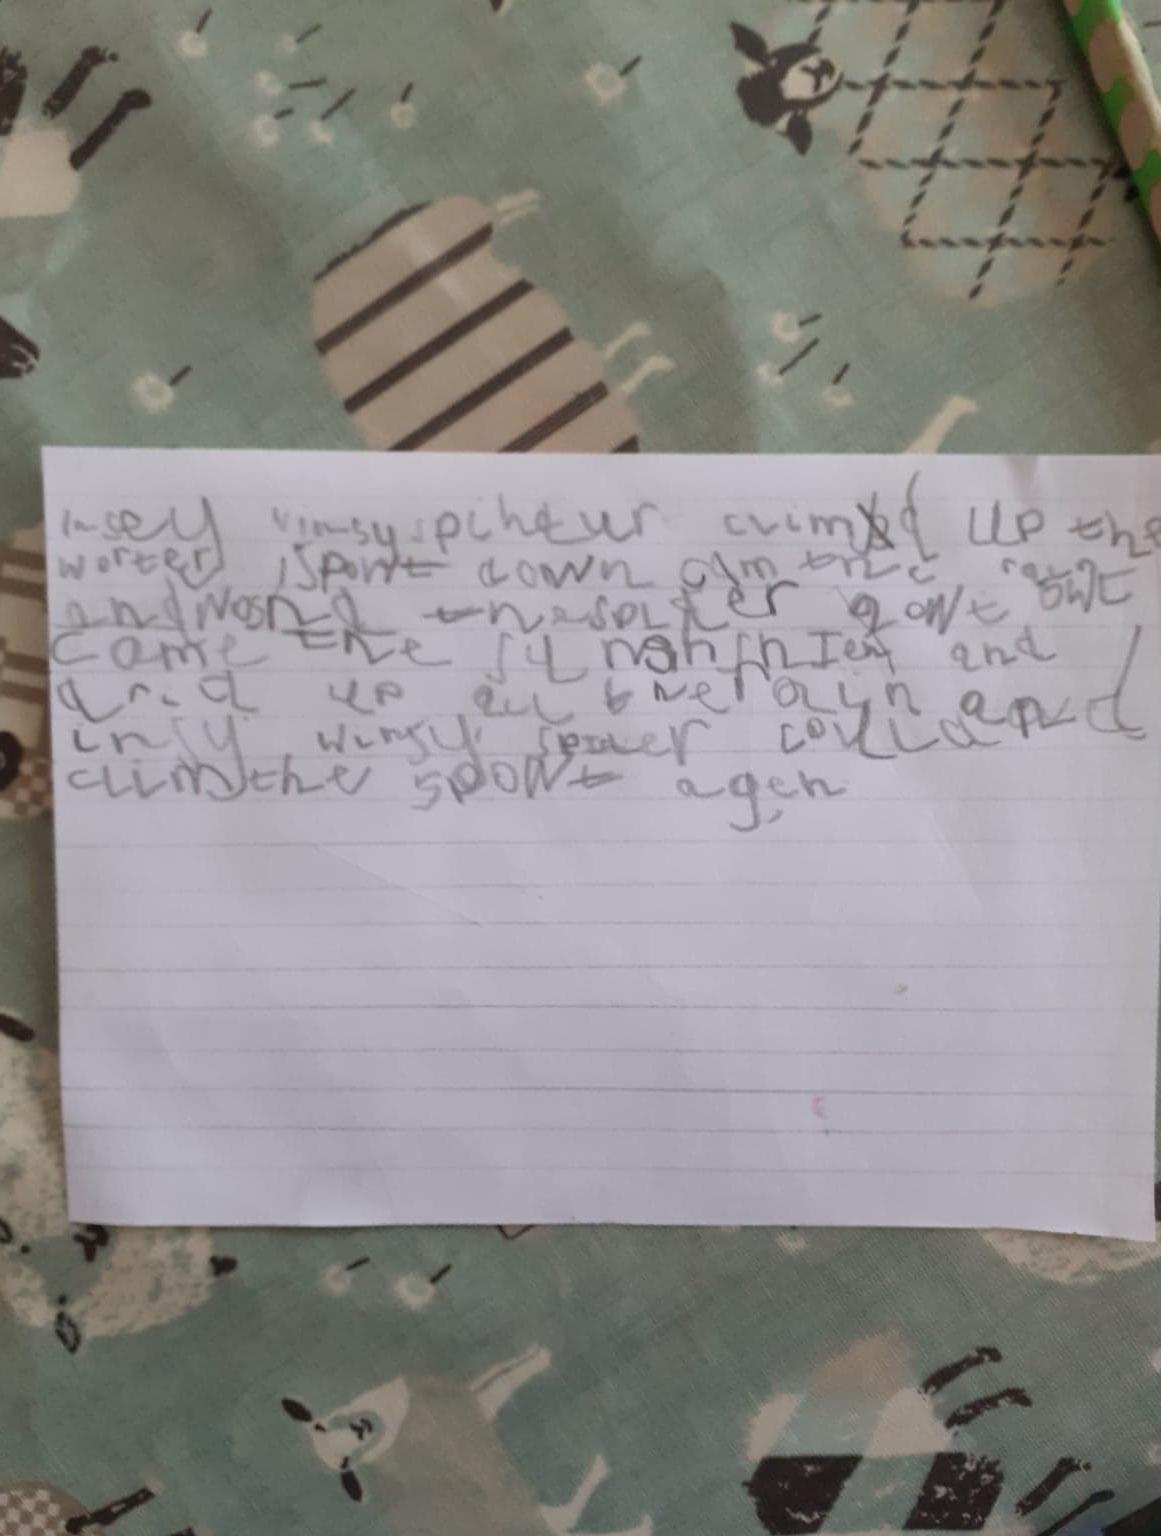 insey winsy spihtur climd up the
worter spowt down cam the rain
and woshd the spider aowt owt
came the sunshin and
drid up all the rayn and
insy winsy spider could
clim the spowt agen